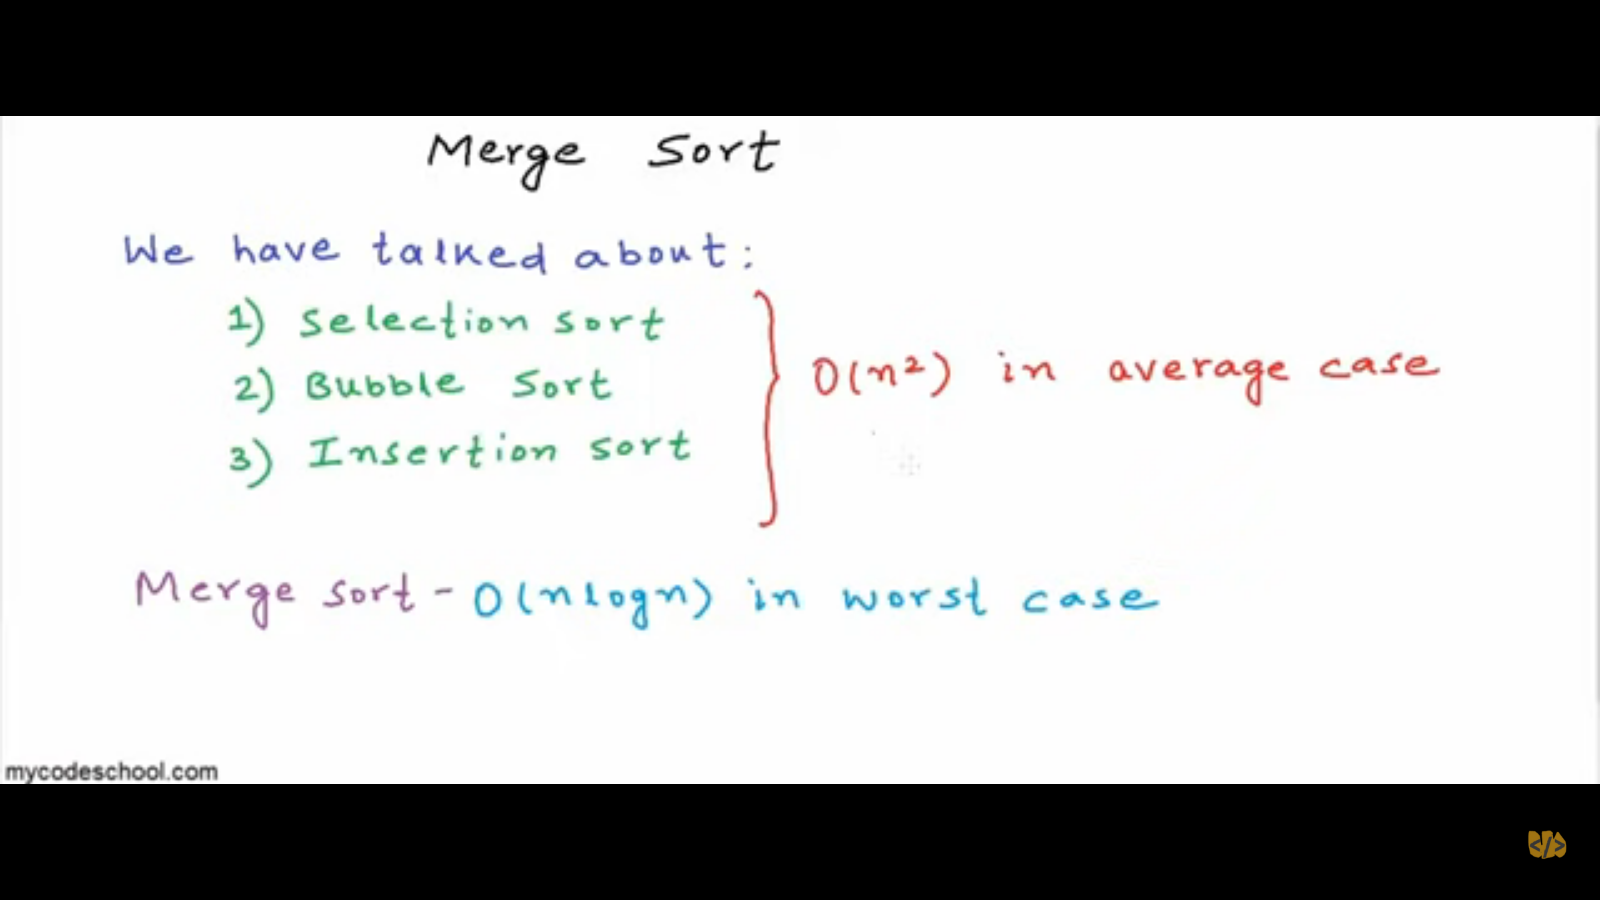 Merge Sort
We have talked about:
1) Selection sort
2) Bubble Sort
3) Insertion sort
O(n²) in average case
Merge sort - O(nlogn) in worst case
mycodeschool.com
</>